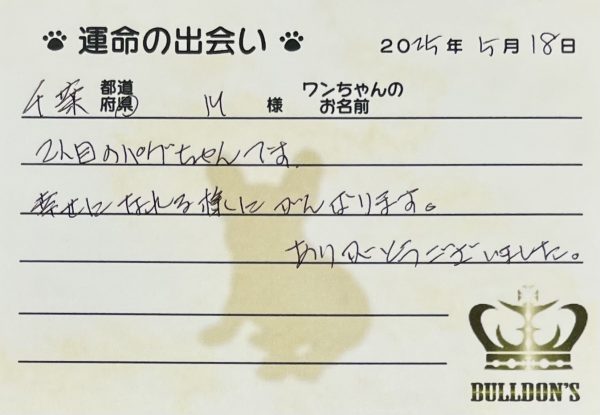 運命の出会い
2025年 5月 18日
千葉 都道府県 M 様 ワンちゃんのお名前
2人目のパグちゃんです。
幸せになれる様にがんばります。
ありがとうございました。
BULLDON'S